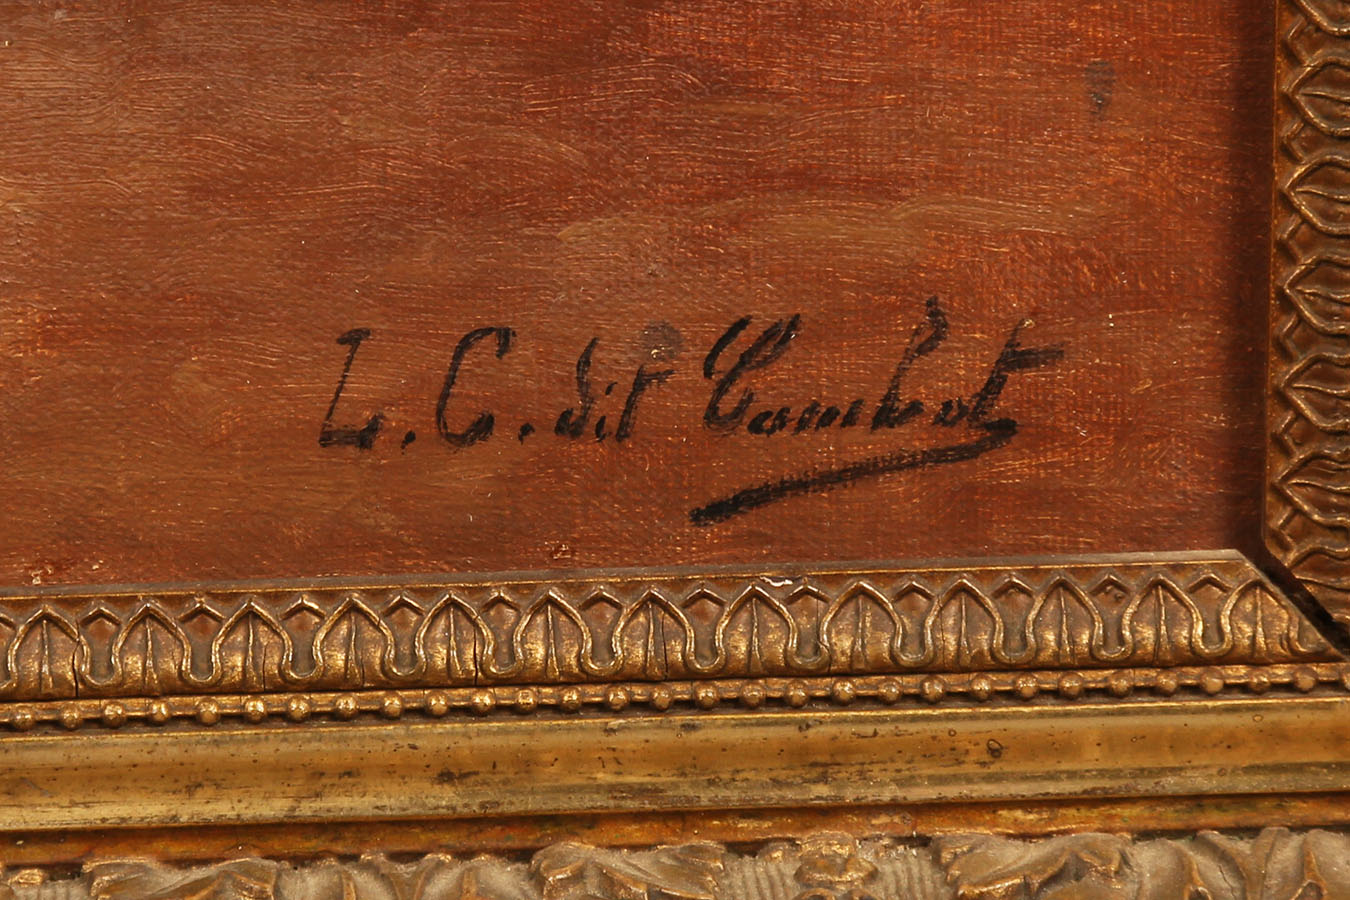 L. C. dit Cambot